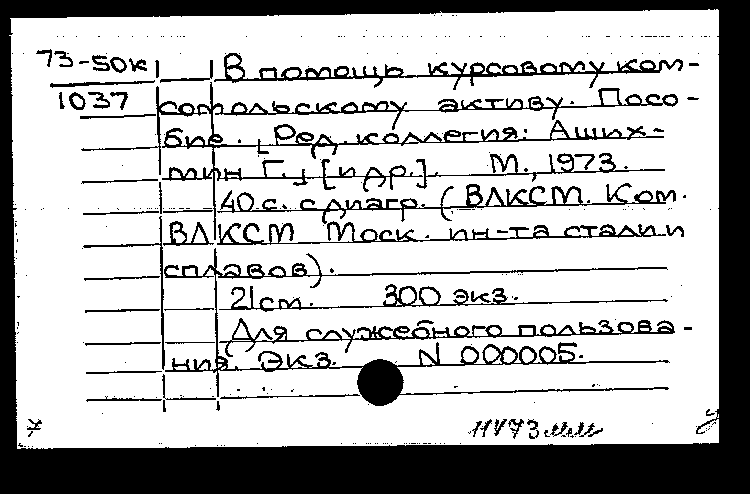 73-50к В помощь курсовому ком-
1037 сомольскому активу. Посо-
бие. [Ред. коллегия: Аших-
мин Г.] [и др.]. М., 1973.
40 с. с диагр. (ВЛКСМ. Ком.
ВЛКСМ Моск. ин-та стали и
сплавов).
21 см. 300 экз.
Для служебного пользова-
ния. Экз. N 000005.
7